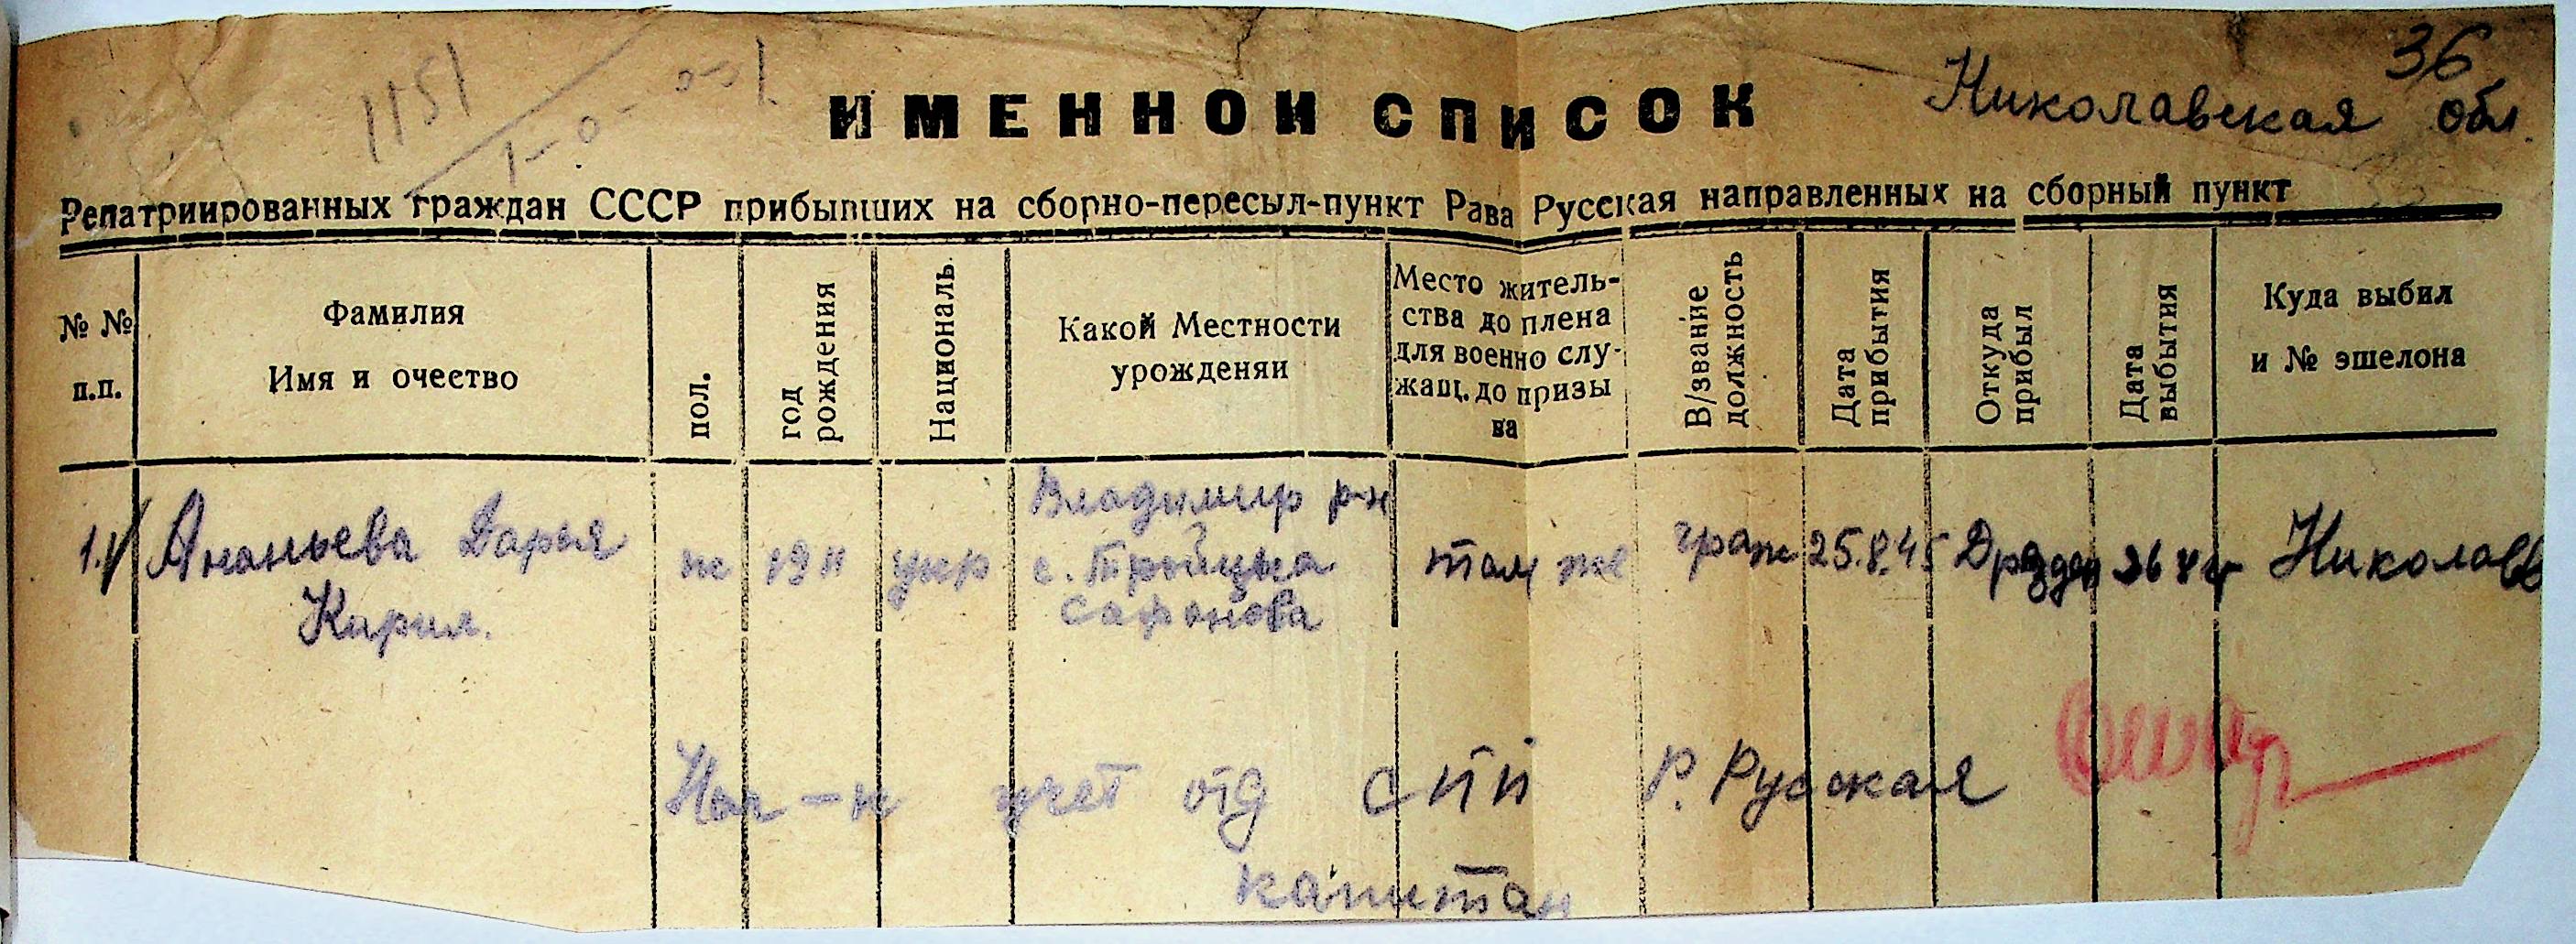 36
1151
ИМЕННОЙ СПИСОК
Николавская обл.
Репатриированных граждан СССР прибывших на сборно-пересыл-пункт Рава Русская направленных на сборный пункт
№ № п.п.
Фамилия
Имя и очество
пол.
год рождения
Националь.
Какой Местности
урожденяи
Место житель-
ства до плена
для военно слу-
жащ. до призы
ва
В/звание должность
Дата прибытия
Откуда прибыл
Дата выбытия
Куда выбил
и № эшелона
1. Ананьева Дарья
Кирил.
ж
1911
укр
Владимир р-н
с. Тройцка
Сафонова
там же
граж
25.8.45
Дрезден
26 8 45
Николаев
Нач-к учет отд СПП Р. Русская
капитан